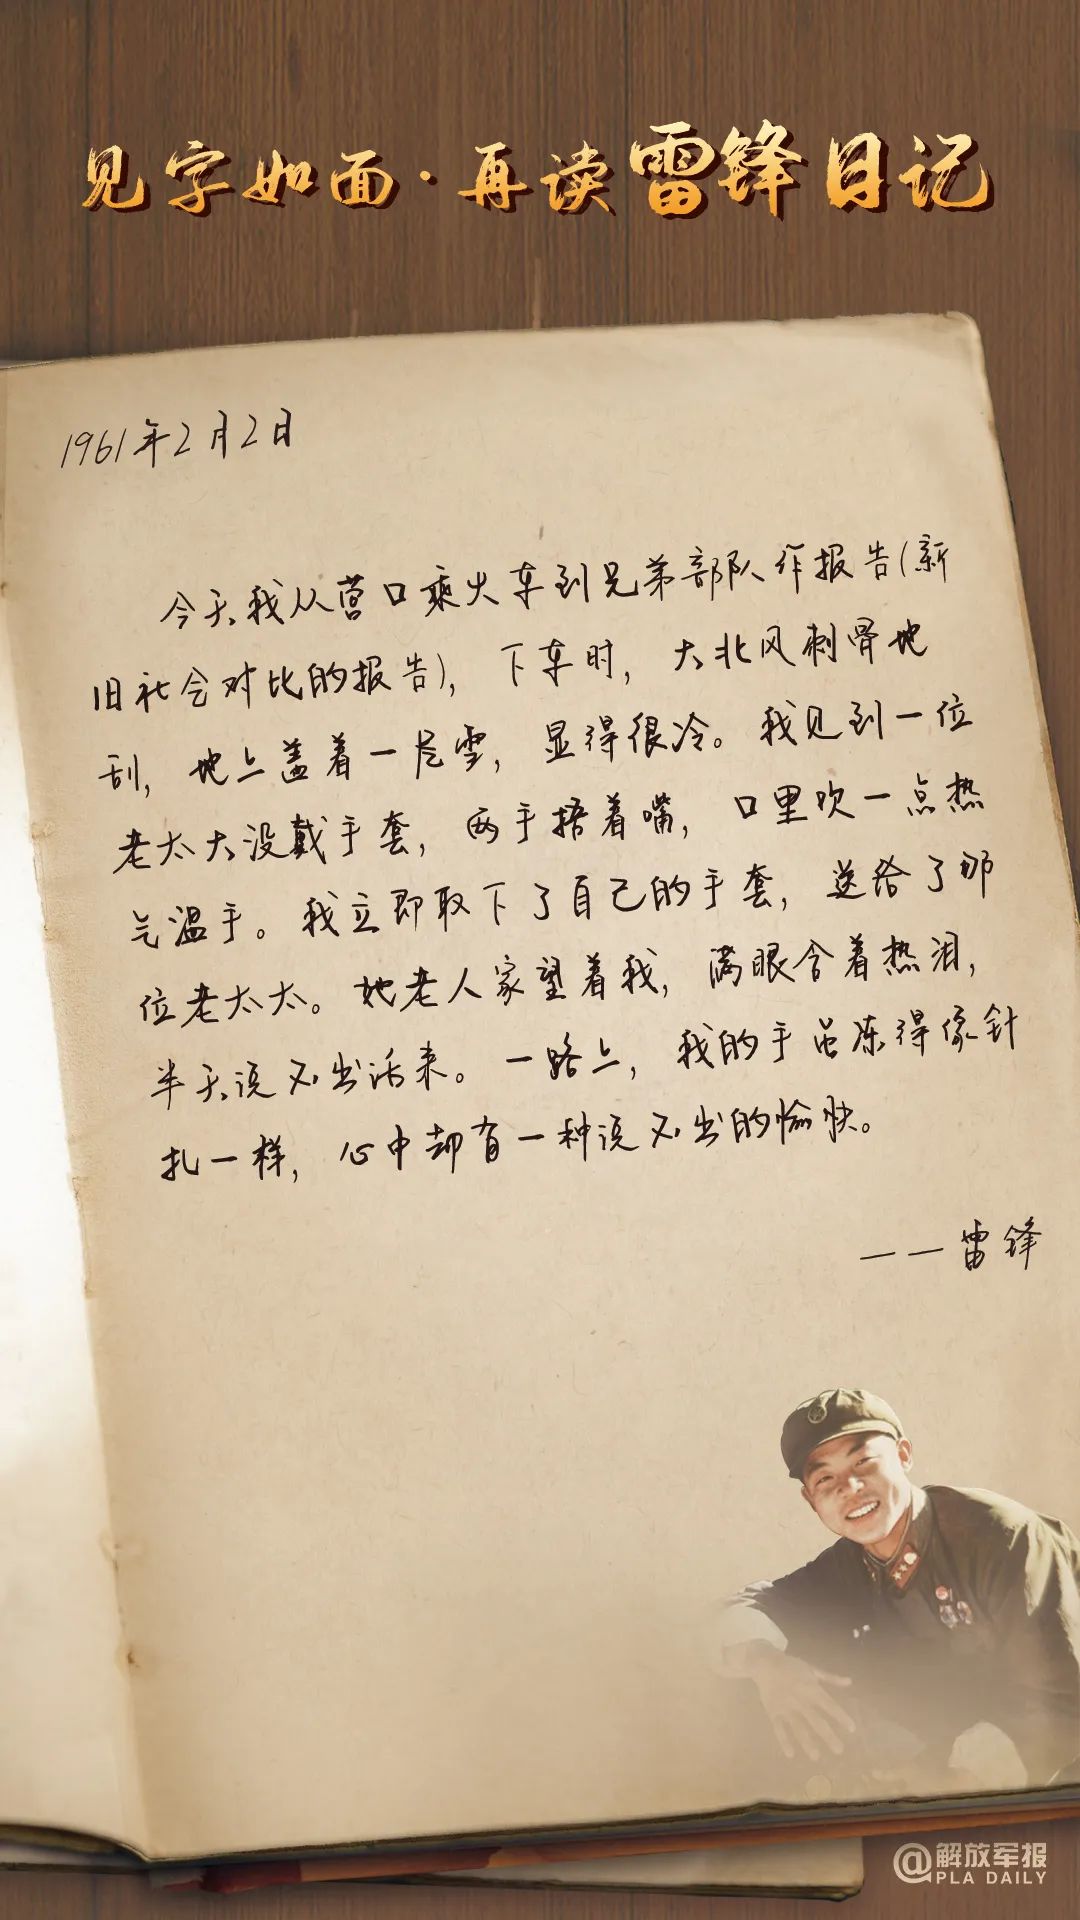 见字如面·再读雷锋日记
1961年2月2日
今天我从营口乘火车到兄弟部队作报告(新
旧社会对比的报告)，下车时，大北风刺骨地
刮，地上盖着一层雪，显得很冷。我见到一位
老太太没戴手套，两手捂着嘴，口里吹一点热
气温手。我立即取下了自己的手套，送给了那
位老太太。她老人家望着我，满眼含着热泪，
半天说不出话来。一路上，我的手虽冻得像针
扎一样，心中却有一种说不出的愉快。
——雷锋
@解放军报
PLA DAILY